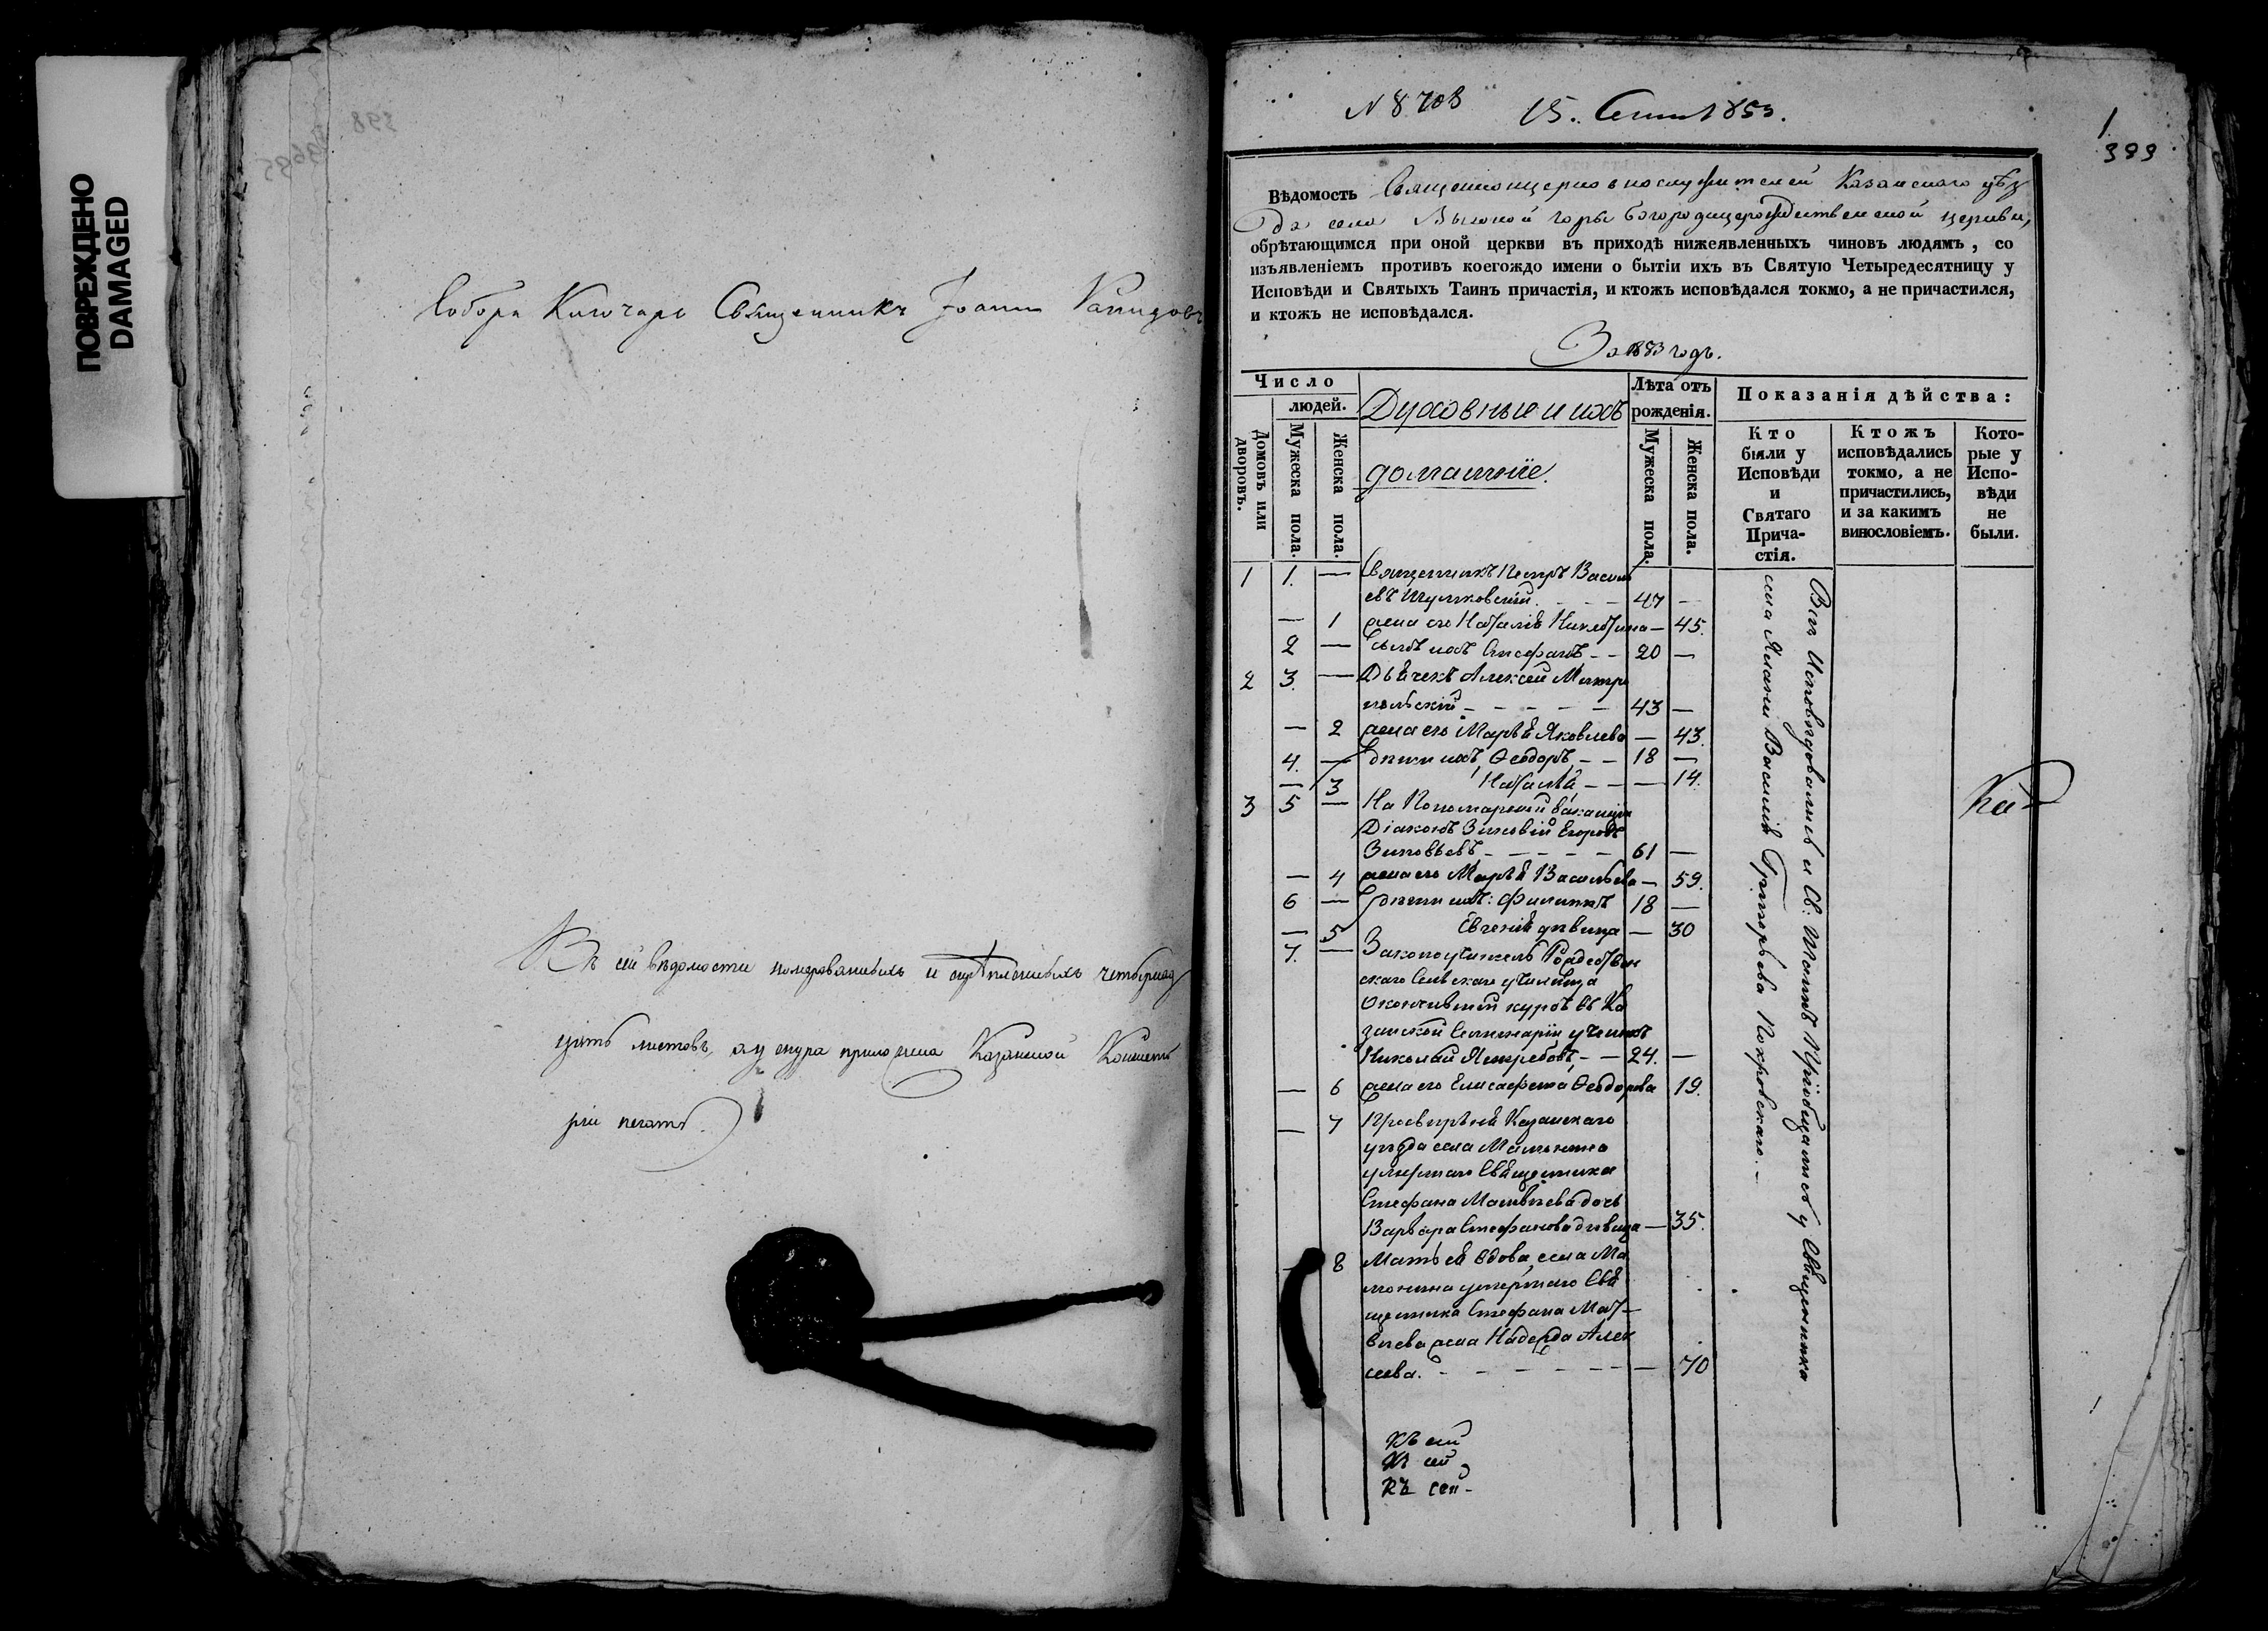 ПОВРЕЖДЕНО
DAMAGED
398
Собора Ключарь Священникъ Іоаннъ
Въ сей вѣдомости номерованныхъ и скрѣпленныхъ четырнад
цать листовъ, а у шнура приложена Казанской Консисто
ріи печать.
N 8703 15. Сент 1853.
1
399
Вѣдомость Священноцерковнослужителей Казанскаго уѣз
да села Высокой горы Богородицерождественской церкви,
обрѣтающимся при оной церкви въ приходѣ нижеявленныхъ чиновъ людямъ, со
изъявленіемъ противъ коегождо имени о бытіи ихъ въ Святую Четыредесятницу у
Исповѣди и Святыхъ Таинъ причастія, и ктожъ исповѣдался токмо, а не причастился,
и ктожъ не исповѣдался.
За 1853 годъ.
Число
людей.
Домовъ или дворовъ.
Мужеска пола.
Женска пола.
Духовные и ихъ
домашніе.
Лѣта отъ
рожденія.
Мужеска пола.
Женска пола.
Показанія дѣйства:
Кто
были у
Исповѣди
и
Святаго
Прича-
стія.
Ктожъ
исповѣдались
токмо, а не
причастились,
и за какимъ
винословіемъ.
Кото-
рые у
Испо-
вѣди
не
были.
1 1. — Священникъ Петръ Василь
евъ - - - 47 —
— 1 жена его Наталія Никитина — 45.
2 — Сынъ ихъ Стефанъ - - 20 —
2 3. — Дьячекъ Алексей Митро
польскій - - - - - 43 —
— 2 жена его Марья Яковлева — 43.
4. — дѣти ихъ, Ѳеодоръ, - - 18 —
— 3 Наталья - - — 14.
3 5 — На Пономарской ваканціи
Діаконъ Зиновій Егоровъ
Зиновьевъ - - - - - 61 —
— 4 жена его Марья Васильева — 59.
6 — дѣти ихъ: Филиппъ 18 —
— 5 Евгенія дѣвица — 30
7. — Законоучитель Рождествен
скаго Сельскаго училища
Окончившій курсъ въ Ка
занской Семинаріи ученикъ
Николай Ястребовъ, - - 24. —
— 6 жена его Елисавета Ѳеодорова 19.
— 7 Просвирня Казанскаго
уѣзда села Мамонино
умершаго Священника
Стефана Матвѣева дочь
Варвара Стефанова дѣвица — 35.
— 8 Мать ея вдова, села Ма
монина умершаго Свя
щенника Стефана Мат-
вѣева жена Надежда Алек
сеева. - - - - - - — 70
Всѣ Исповѣдовались и Св. Таинъ Пріобщались у Священника
села Василія Григорьева Покровскаго. -
Къ сей
Къ сей
Къ сей -